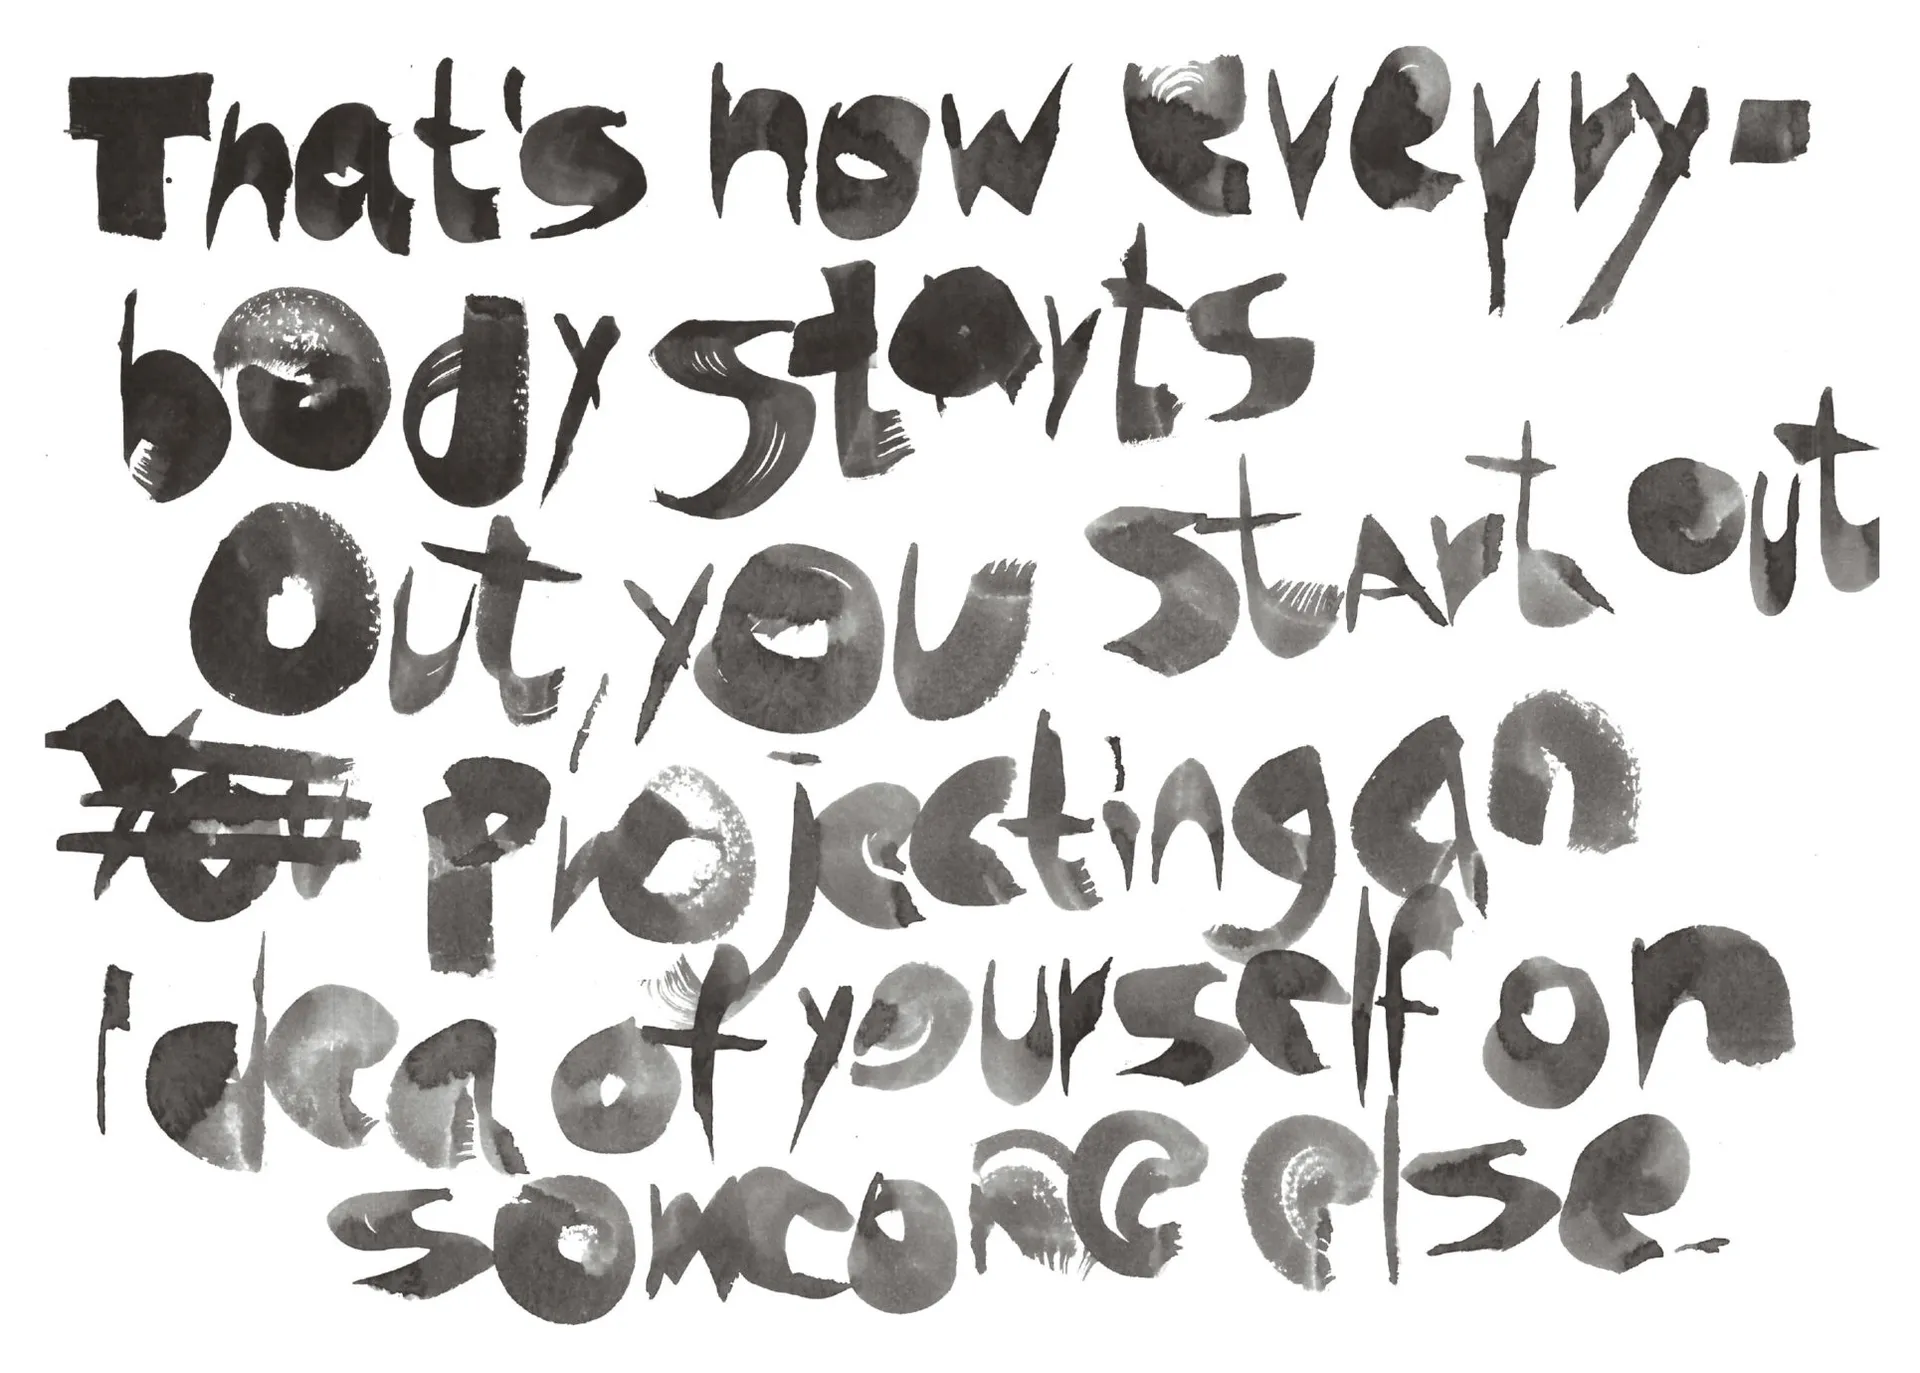 That's how eveyry-
body starts
out, you start out
projecting an
idea of yourself on
someone else.